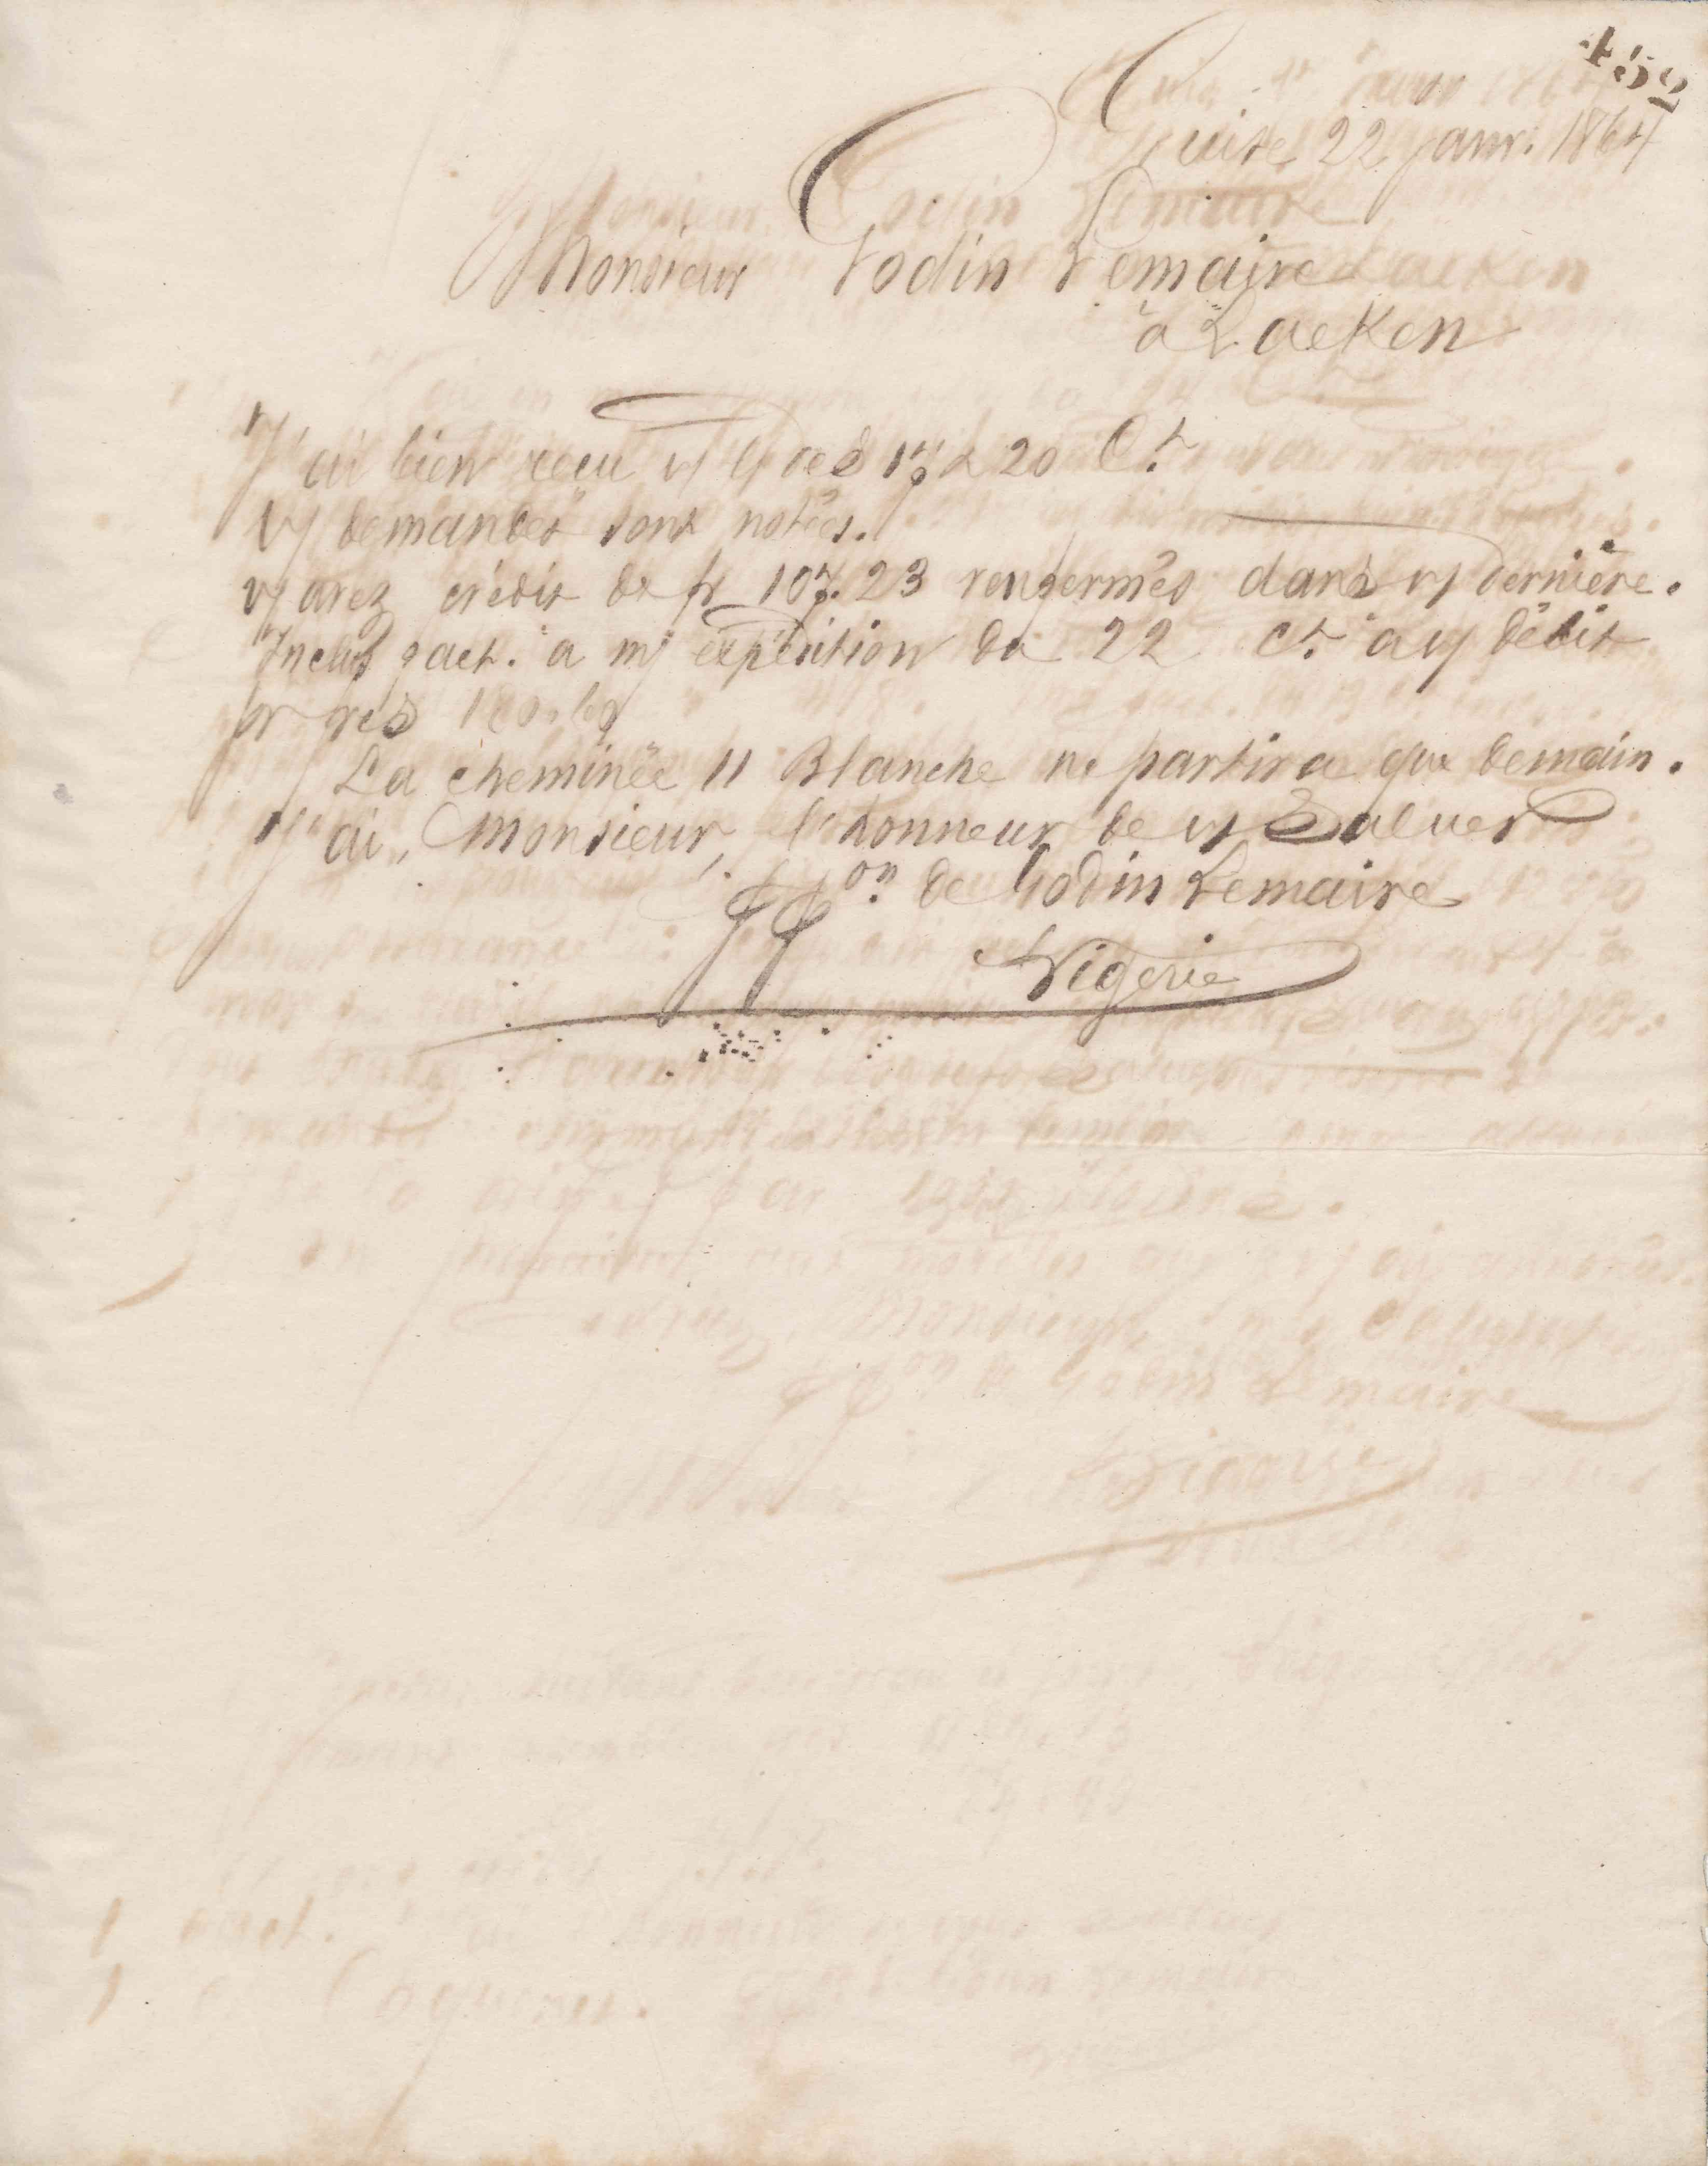 452
Guise 22 janv. 1864
Monsieur Godin Lemaire
à Laeken
J'ai bien reçu v/ l/ des 17 & 20 Ct
V/ demandes sont notées.
v/ avez crédit de fr 107.23 renfermés dans v/ dernière.
Inclus fact. à m/ expédition du 22 Ct à v/ débit
pr
La cheminée 11 Blanche ne partira que demain.
J'ai, Monsieur, l'honneur de v/ Saluer
on de Godin Lemaire
Vigerie